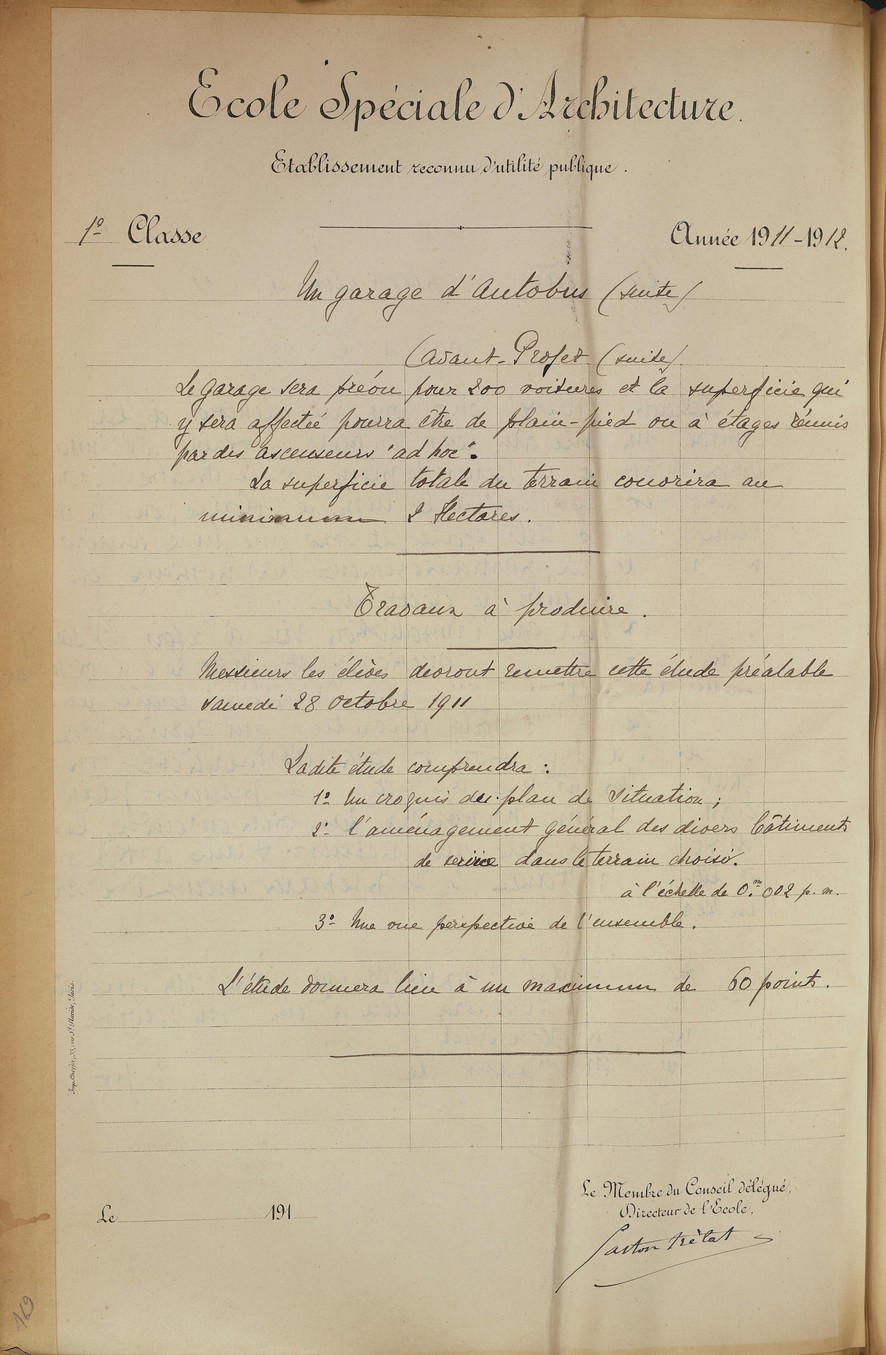 Ecole Spéciale d'Architecture.
Etablissement reconnu d'utilité publique.
1º Classe
Année 1911-1912.
Un garage d'Autobus (suite)
(Avant-Projet (suite)
Le garage sera prévu pour 200 voitures et la superficie qui
y sera affectée pourra être de plain-pied ou à étages réunis
par des ascenseurs "ad hoc".
La superficie totale du terrain couvrira au
minimum 2 Hectares.
Travaux à produire.
Messieurs les élèves devront remettre cette étude préalable
samedi 28 octobre 1911
Ladite étude comprendra :
1º Un croquis du plan de situation ;
2º l'aménagement général des divers bâtiments
de service dans le terrain choisi.
à l'échelle de 0.m002 p. m.
3º Une vue perspective de l'ensemble.
L'étude donnera lieu à un maximum de 60 points.
Le Membre du Conseil délégué,
Directeur de l'Ecole,
Le 191
Gaston Trélat
169